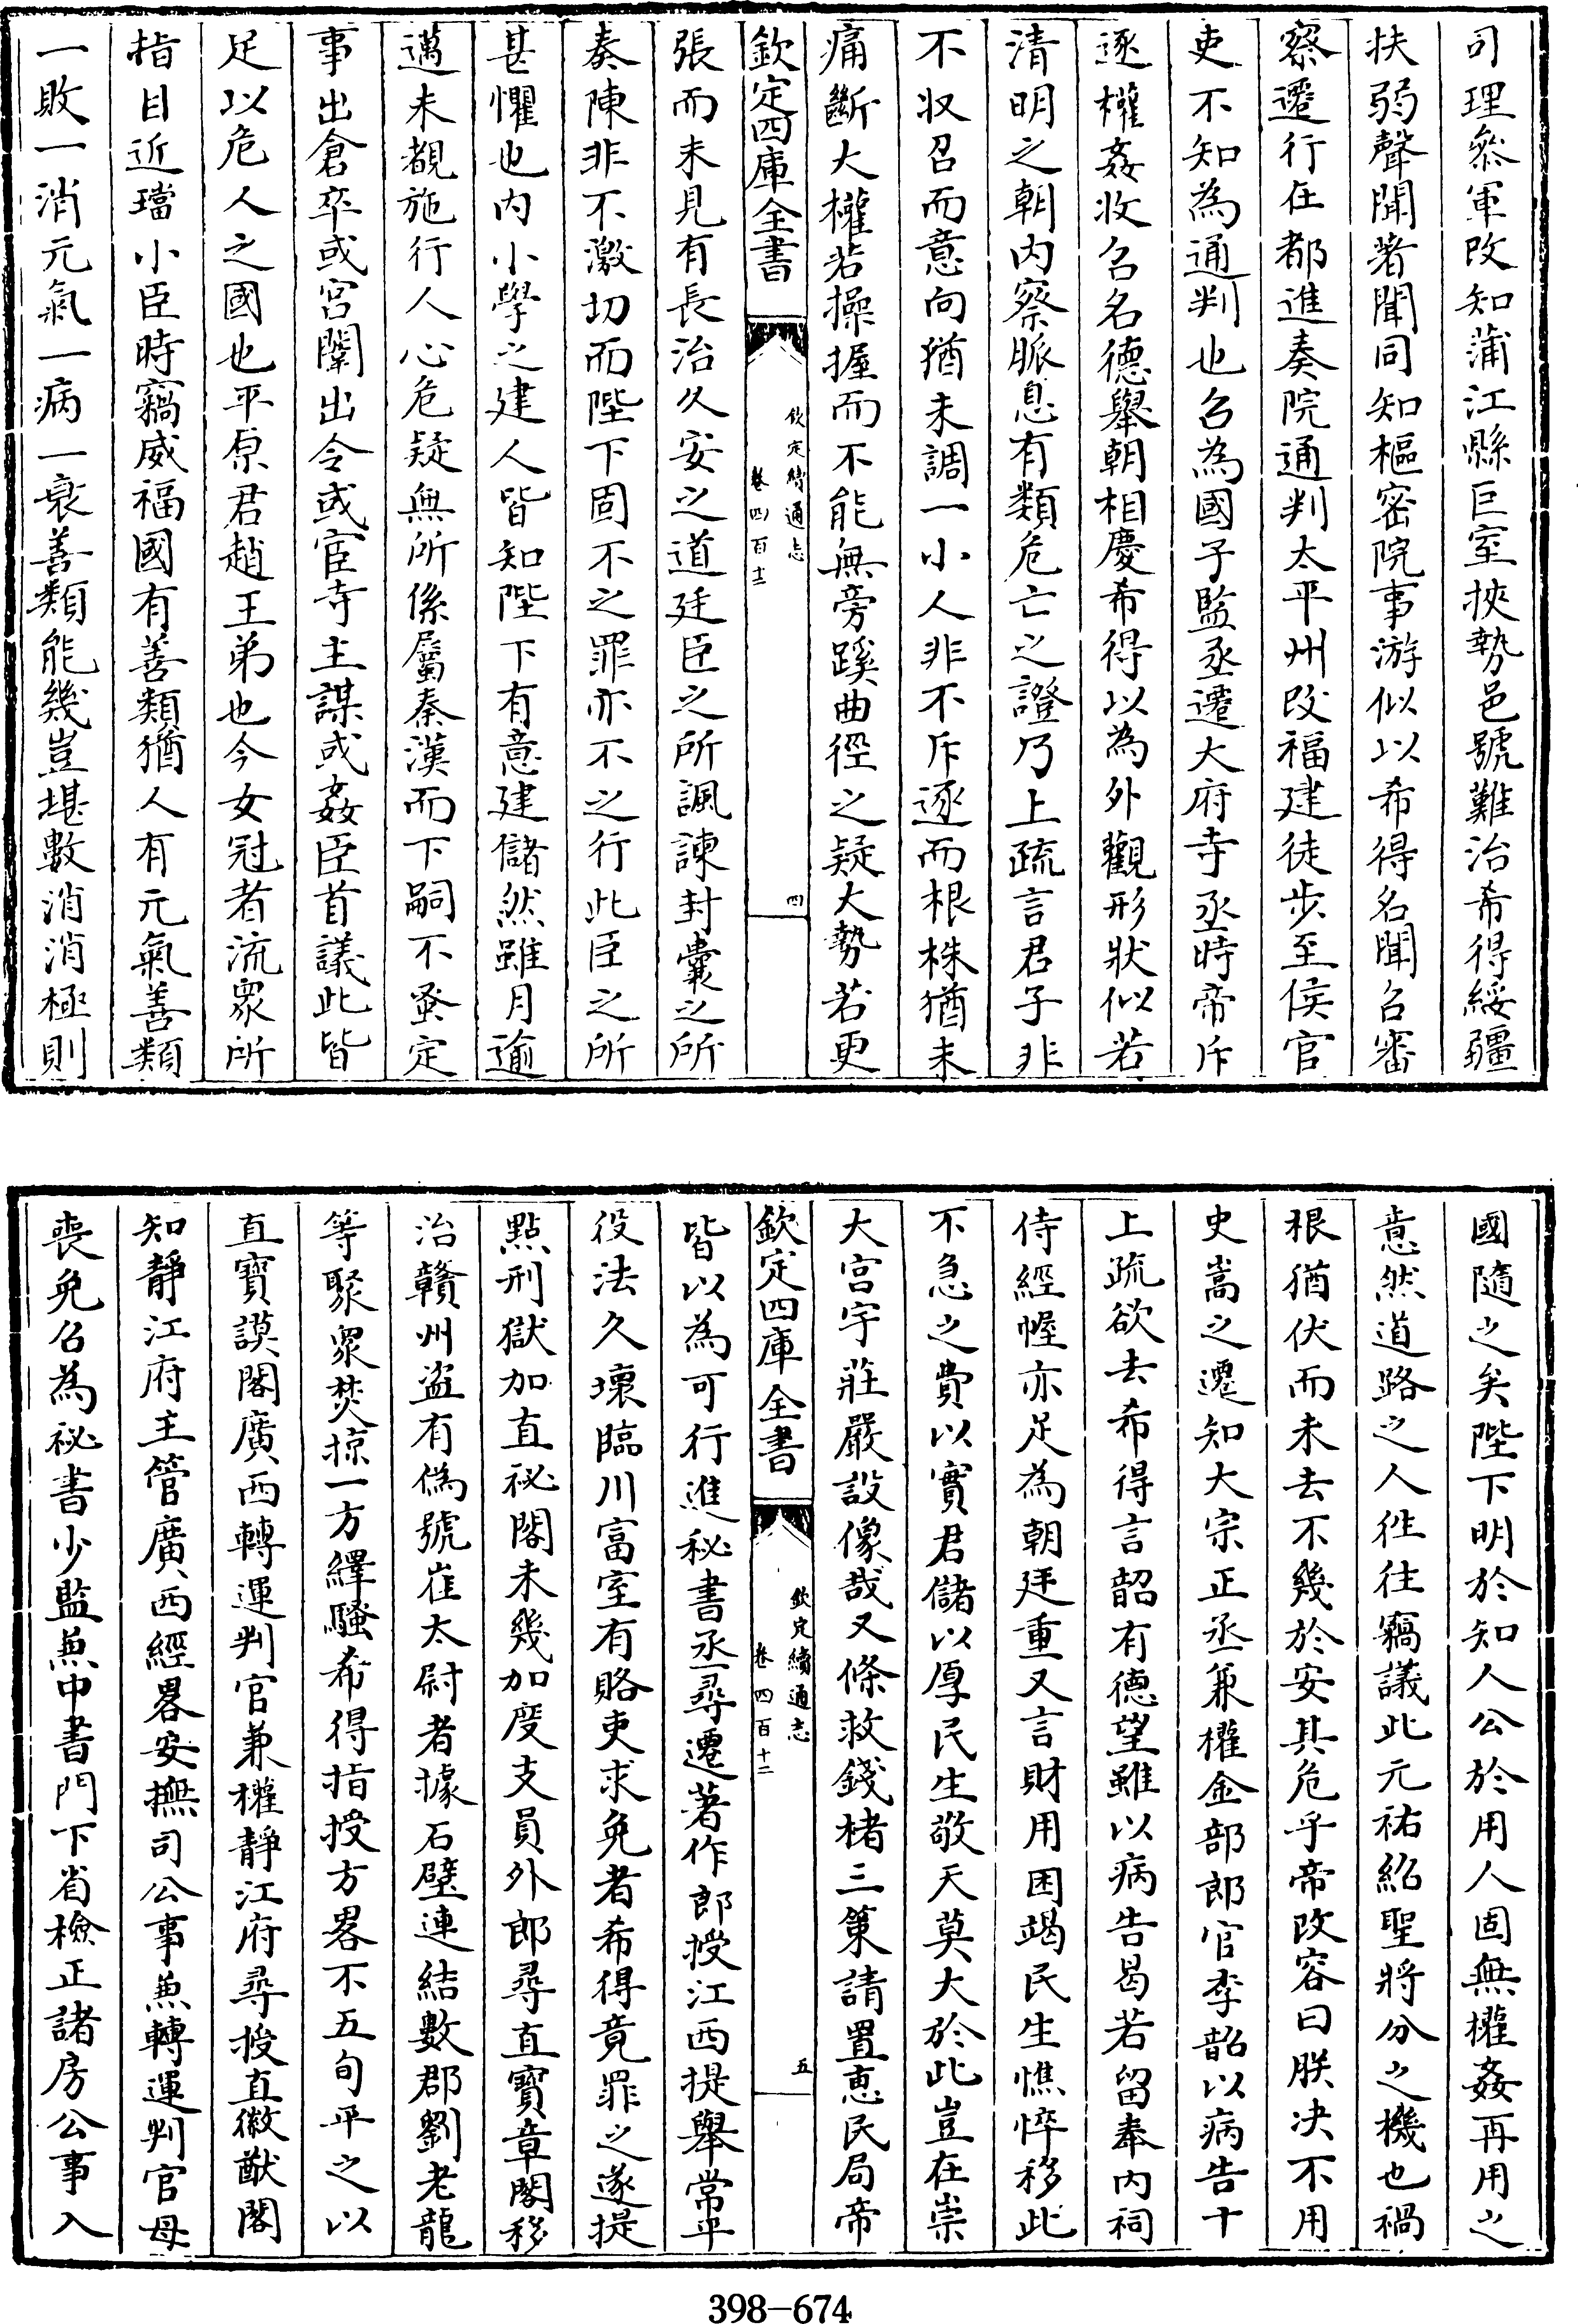 司理叅軍改知蒲江縣巨室挾勢邑號難治希得綏疆
扶弱聲聞著聞同知樞密院事游似以希得名聞召審
察遷行在都進奏院通判太平州改福建徒步至侯官
吏不知為通判也召為國子監丞遷大府寺丞時帝斥
逐權姦收召名德舉朝相慶希得以為外觀形狀似若
清明之朝内察脈息有類危亡之證乃上疏言君子非
不收召而意向猶未調一小人非不斥逐而根株猶未
痛斷大權若操握而不能無旁蹊曲徑之疑大勢若更
欽定四庫全書
欽定續通志
卷四百十二
四
張而未見有長治久安之道廷臣之所諷諫封囊之所
奏陳非不激切而陛下固不之罪亦不之行此臣之所
甚懼也内小學之建人皆知陛下有意建儲然雖月逾
邁未覩施行人心危疑無所係屬秦漢而下嗣不蚤定
事出倉卒或宫闈出令或宦寺主謀或姦臣首議此皆
足以危人之國也平原君趙王弟也今女冠者流眾所
指目近璫小臣時竊威福國有善類猶人有元氣善類
一敗一消元氣一病一衰善類能幾豈堪數消消極則
國隨之矣陛下明於知人公於用人固無權姦再用之
意然道路之人徃往竊議此元祐紹聖將分之機也禍
根猶伏而未去不幾於安其危乎帝改容曰朕決不用
史嵩之遷知大宗正丞兼權金部郎官李韶以病告十
上疏欲去希得言韶有德望雖以病告曷若留奉内祠
侍經幄亦足為朝廷重又言財用困竭民生憔悴移此
不急之費以實君儲以厚民生敬天莫大於此豈在崇
大宫宇莊嚴設像哉又條救錢楮三策請置惠民局帝
欽定四庫全書
欽定續通志
卷四百十二
五
皆以為可行進秘書丞尋遷著作郎授江西提舉常平
役法久壞臨川富室有賂吏求免者希得竟罪之遂提
㸃刑獄加直祕閣未幾加度支員外郎尋直寶章閣移
治贛州盜有偽號崔太尉者據石壁連結數郡劉老龍
等聚眾焚掠一方繹騷希得指授方畧不五旬平之以
直寶謨閣廣西轉運判官兼權靜江府尋授直徽猷閣
知靜江府主管廣西經畧安撫司公事兼轉運判官母
喪免召為祕書少監兼中書門下省檢正諸房公事入
398-674